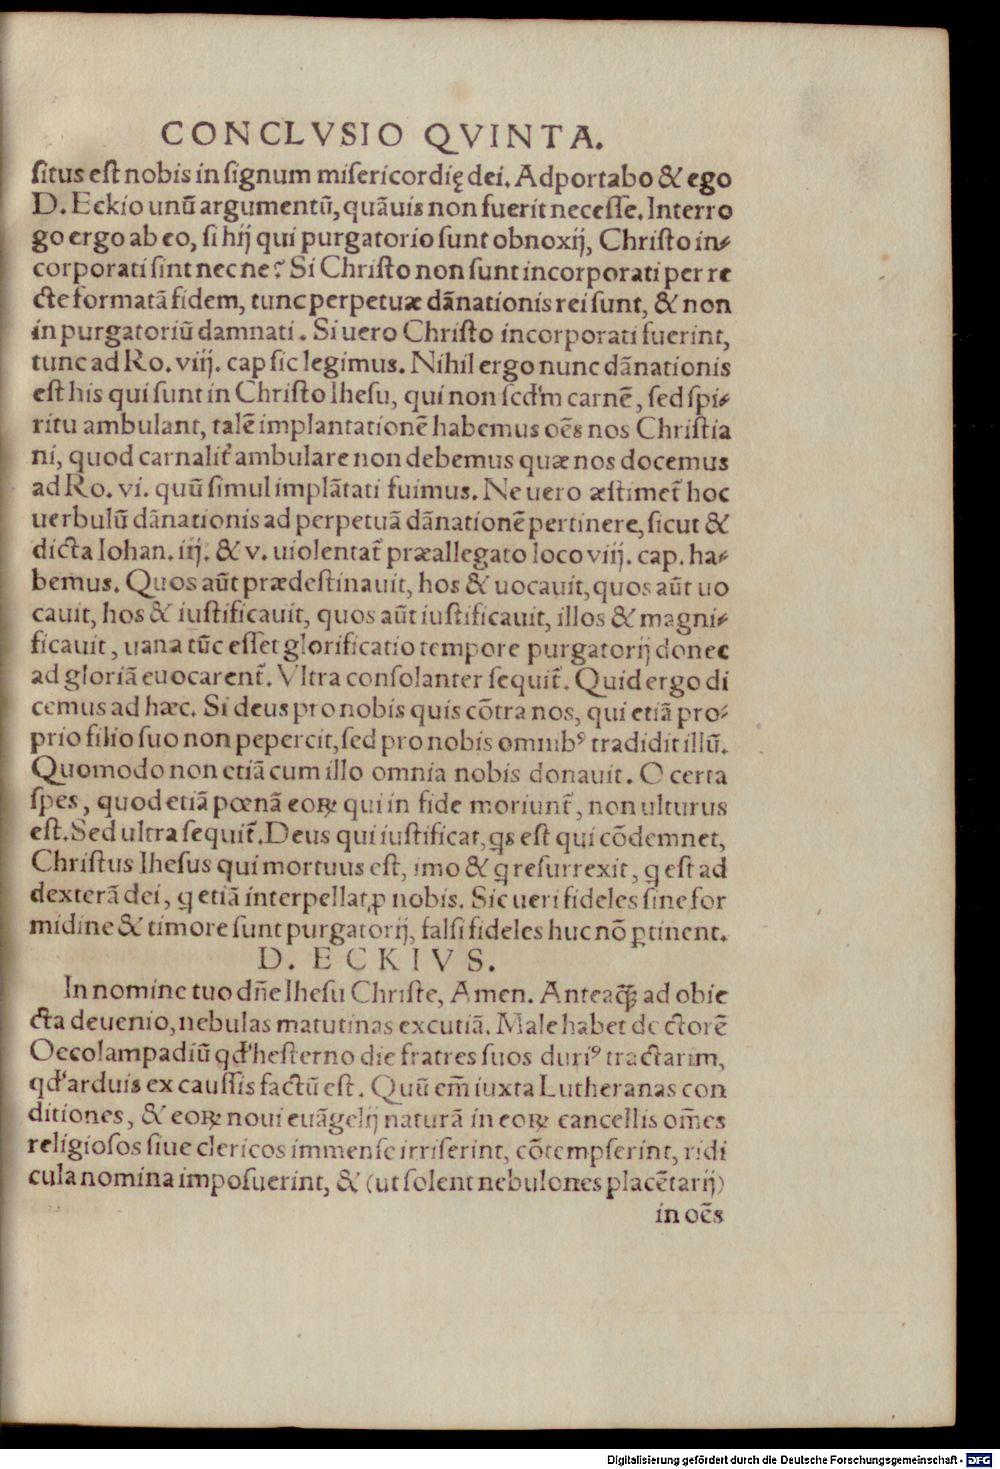 CONCLVSIO QVINTA.
ſitus eſt nobis in ſignum miſericordię dei. Adportabo & ego
D. Eckio unū argumentū, quāuis non fuerit neceſſe. Interro
go ergo ab eo, ſi hij qui purgatorio ſunt obnoxij, Chriſto in⸗
corporati ſint nec ne? Si Chriſto non ſunt incorporati per re
cte formatā fidem, tunc perpetuæ dānationis rei ſunt, & non
in purgatoriū damnati. Si uero Chriſto incorporati fuerint,
tunc ad Ro. viij. cap ſic legimus. Nihil ergo nunc dānationis
eſt his qui ſunt in Chriſto Iheſu, qui non ſcďm carnē, ſed ſpi⸗
ritu ambulant, talē implantationē habemus oēs nos Chriſtia
ni, quod carnalit̄ ambulare non debemus quæ nos docemus
ad Ro. vi. quū ſimul implātati fuimus. Ne uero æſtimet̄ hoc
uerbulū dānationis ad perpetuā dānationē pertinere, ſicut &
dicta Iohan. iij. & v. uiolentat̄ præallegato loco viij. cap. ha⸗
bemus. Quos aūt prædeſtinauit, hos & uocauit, quos aūt uo
cauit, hos & iuſtificauit, quos aūt iuſtificauit, illos & magni⸗
ficauit, uana tūc eſſet glorificatio tempore purgatorij donec
ad gloriā euocarent̄. Vltra conſolanter ſequit̄. Quid ergo di
cemus ad hæc. Si deus pro nobis quis cōtra nos, qui etiā pro⸗
prio filio ſuo non pepercit, ſed pro nobis omnibꝰ tradidit illū.
Quomodo non etiā cum illo omnia nobis donauit. O certa
ſpes, quod etiā pœnā eoꝝ qui in fide moriunt̄, non ulturus
eſt. Sed ultra ſequit̄. Deus qui iuſtificat, qs eſt qui cōdemnet,
Chriſtus Iheſus qui mortuus eſt, imo & q reſurrexit, q eſt ad
dexterā dei, q etiā interpellat ꝓ nobis. Sic ueri fideles ſine for
midine & timore ſunt purgatorij, falſi fideles huc nō ꝑtinent.
D. ECKIVS.
In nomine tuo dñe Iheſu Chriſte, Amen. Anteaꝗ̄ ad obie
cta deuenio, nebulas matutinas excutiā. Male habet doctorē
Oecolampadiū qď heſterno die fratres ſuos duriꝰ tractarim,
qď arduis ex cauſſis factū eſt. Quū em̄ iuxta Lutheranas con
ditiones, & eoꝝ noui euāgelij naturā in eoꝝ cancellis om̄es
religioſos ſiue clericos immenſe irriſerint, cōtempſerint, ridi
cula nomina impoſuerint, & (ut ſolent nebulones placētarij)
in oēs
Digitalisierung gefördert durch die Deutsche Forschungsgemeinschaft - DFG